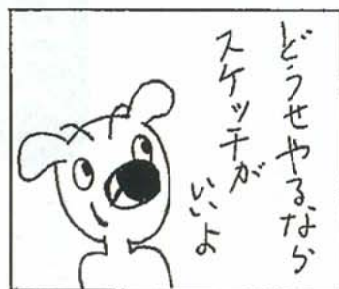 どうせやるなら
スケッチが
いいよ